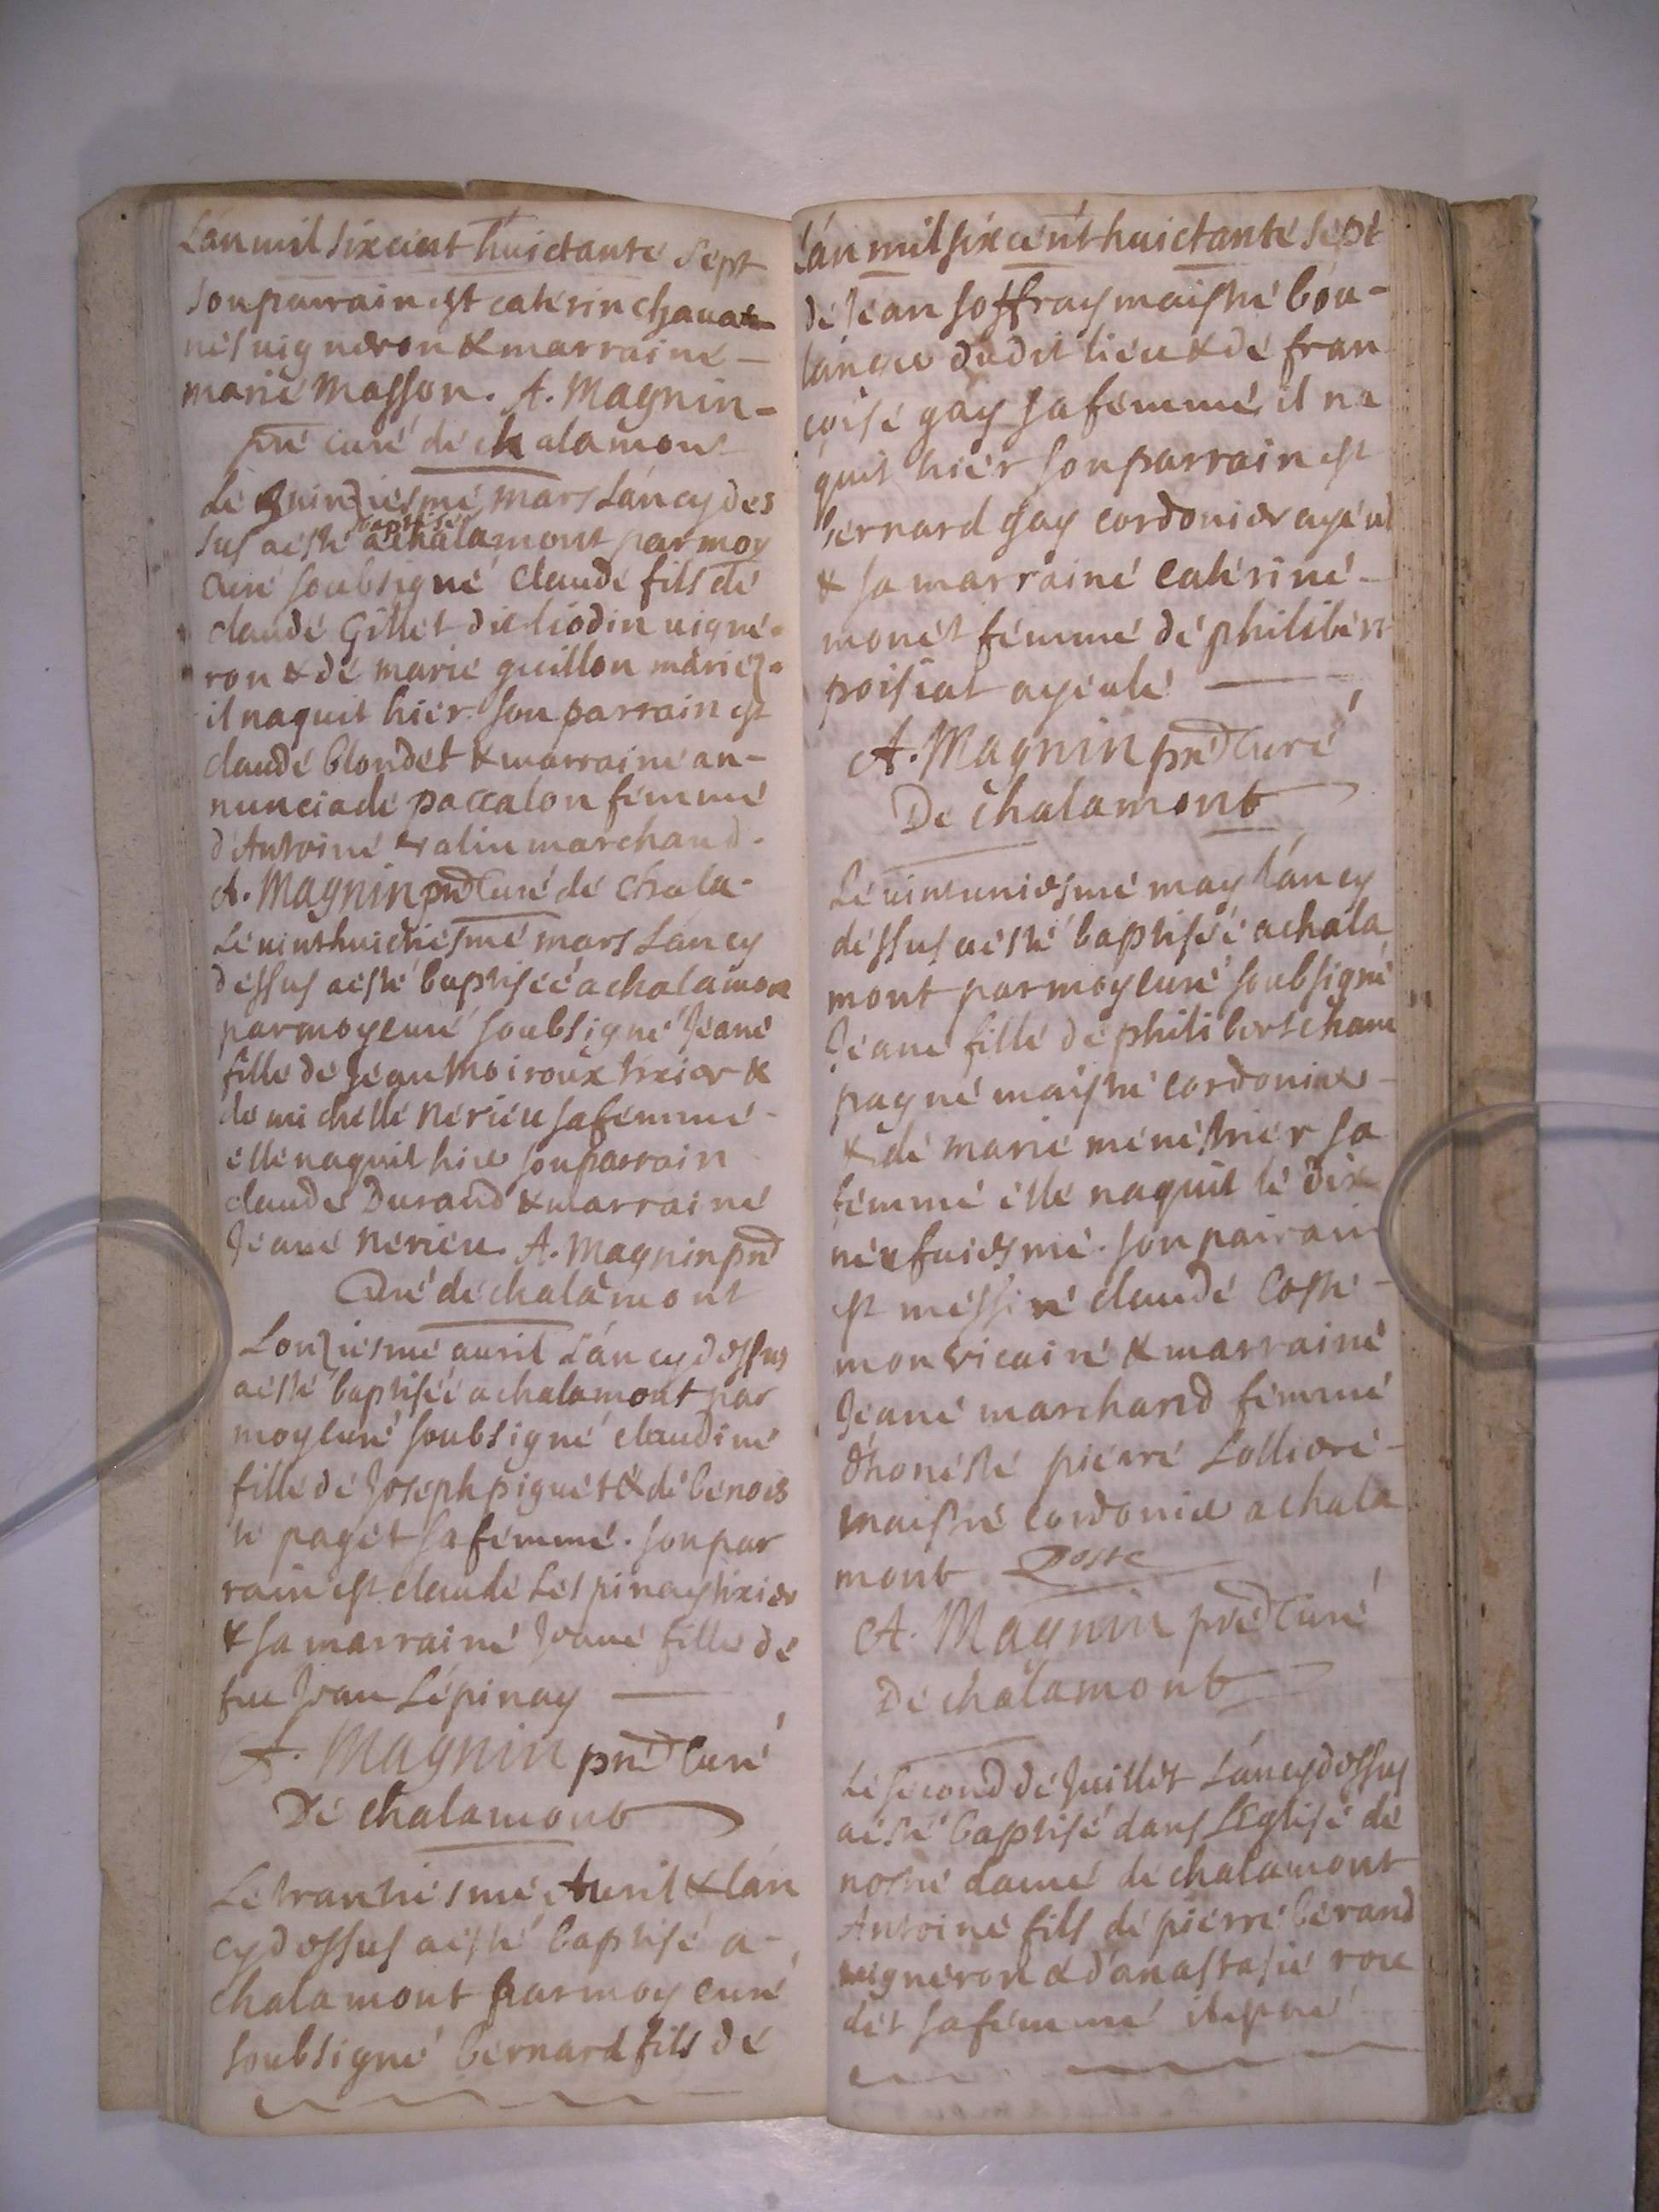 Lán mil six cent huictante sept
son parrain est caterin chaua
nes uigneron & marraine —
marie masson. A. Magnin -
pre curé de chalamont
Le quinziesme mars Láncydes
sus aesté baptisé a chalamont par moy
Curé soubsigné Claude fils de
claude Gillet dit liodin uigne-
ron & de marie guillon mariez.
il naquit hier son parrain est
claude blondet & marraine an-
nunciade paccalon femme
d'Antoine marchand.
A. Magnin pre Curé de Chala-
Le uinthuictiesme mars Láncy
dessus aesté baptiseé a chalamon
par moy curé soubsigné Jeane
fille de Jean Moiroux tixier &
de michelle nerieu sa femme -
elle naquit hier son parrain
claude Durand & marraine
Jeane nerieu. A. Magnin pre
Curé de chalamont
Lonziesme auril Láncydessus
aesté baptiseé a chalamont par
moy curé soubsigné claudine
fille de Joseph piguet & de benois
te paget sa femme. son par
rain est claude Lespinay tixier
& sa marraine Jeane fille de
feu Jean Lépinay —
A. Magnin pre Curé
De chalamont
Le trantiesme Auril & lán
cydessus aesté baptisé a-
chalamont par moy curé
soubsigné bernard fils de
Lán mil six cent huictante sept
de Jean soffray maistre bou-
langer dudit lieu & de fran
coise gay sa femme, il na
quit hier son parrain est
bernard gay cordonier ayeul
& sa marraine caterine -
monet femme de philibert
poisiat ayeule —
A. Magnin pre Curé
De chalamont
Le uintuniesme may Láncy
dessus aesté baptiseé a chala
mont par moy curé soubsigné
Jeane fille de philibert cham
pagne maistre cordonier -
& de marie menestrier sa
femme elle naquit le dix
neufuiesme. son pairain
est messire claude Coste -
mon vicaire & marraine
Jeane marchand femme
d'honeste pierre Lolliere -
maistre cordonier a chala
mont Coste
A. Magnin pre Curé
De chalamont
Le second de Juillet Láncydessus
aesté baptisé dans LEglise de
nostre dame de chalamont
Antoine fils de pierre berand
uigneron & d'anastasie rou
det sa femme